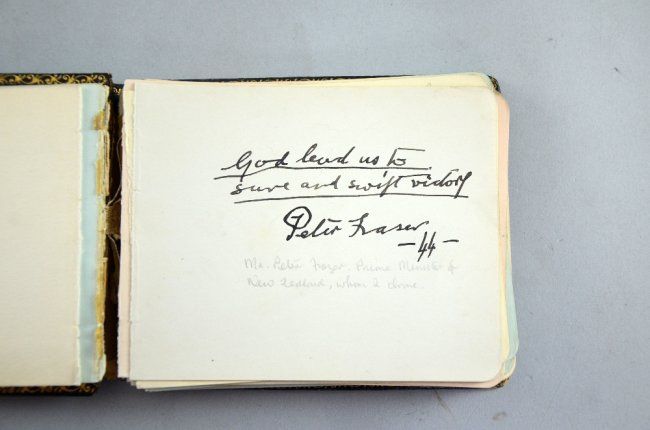 God lead us to
sure and swift victory
Peter Fraser
-44-
Mr. Peter Fraser. Prime Minister of
New Zealand, whom I drove.